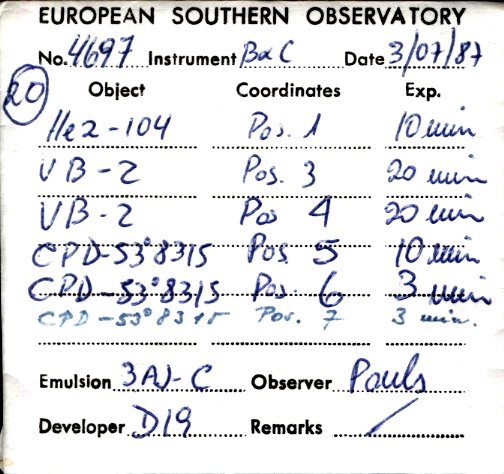 EUROPEAN SOUTHERN OBSERVATORY
No. 4697 Instrument B&C Date 3/07/87
20 Object Coordinates Exp.
He2-104 Pos. 1 10 min
VB-2 Pos. 3 20 min
VB-2 Pos 4 20 min
CPD-53°8315 Pos. 5 10 min
CPD-53°8315 Pos. 6 3 min
CPD-53°8315 Pos. 7 3 min.
Emulsion Observer Pauls
Developer D19 Remarks /